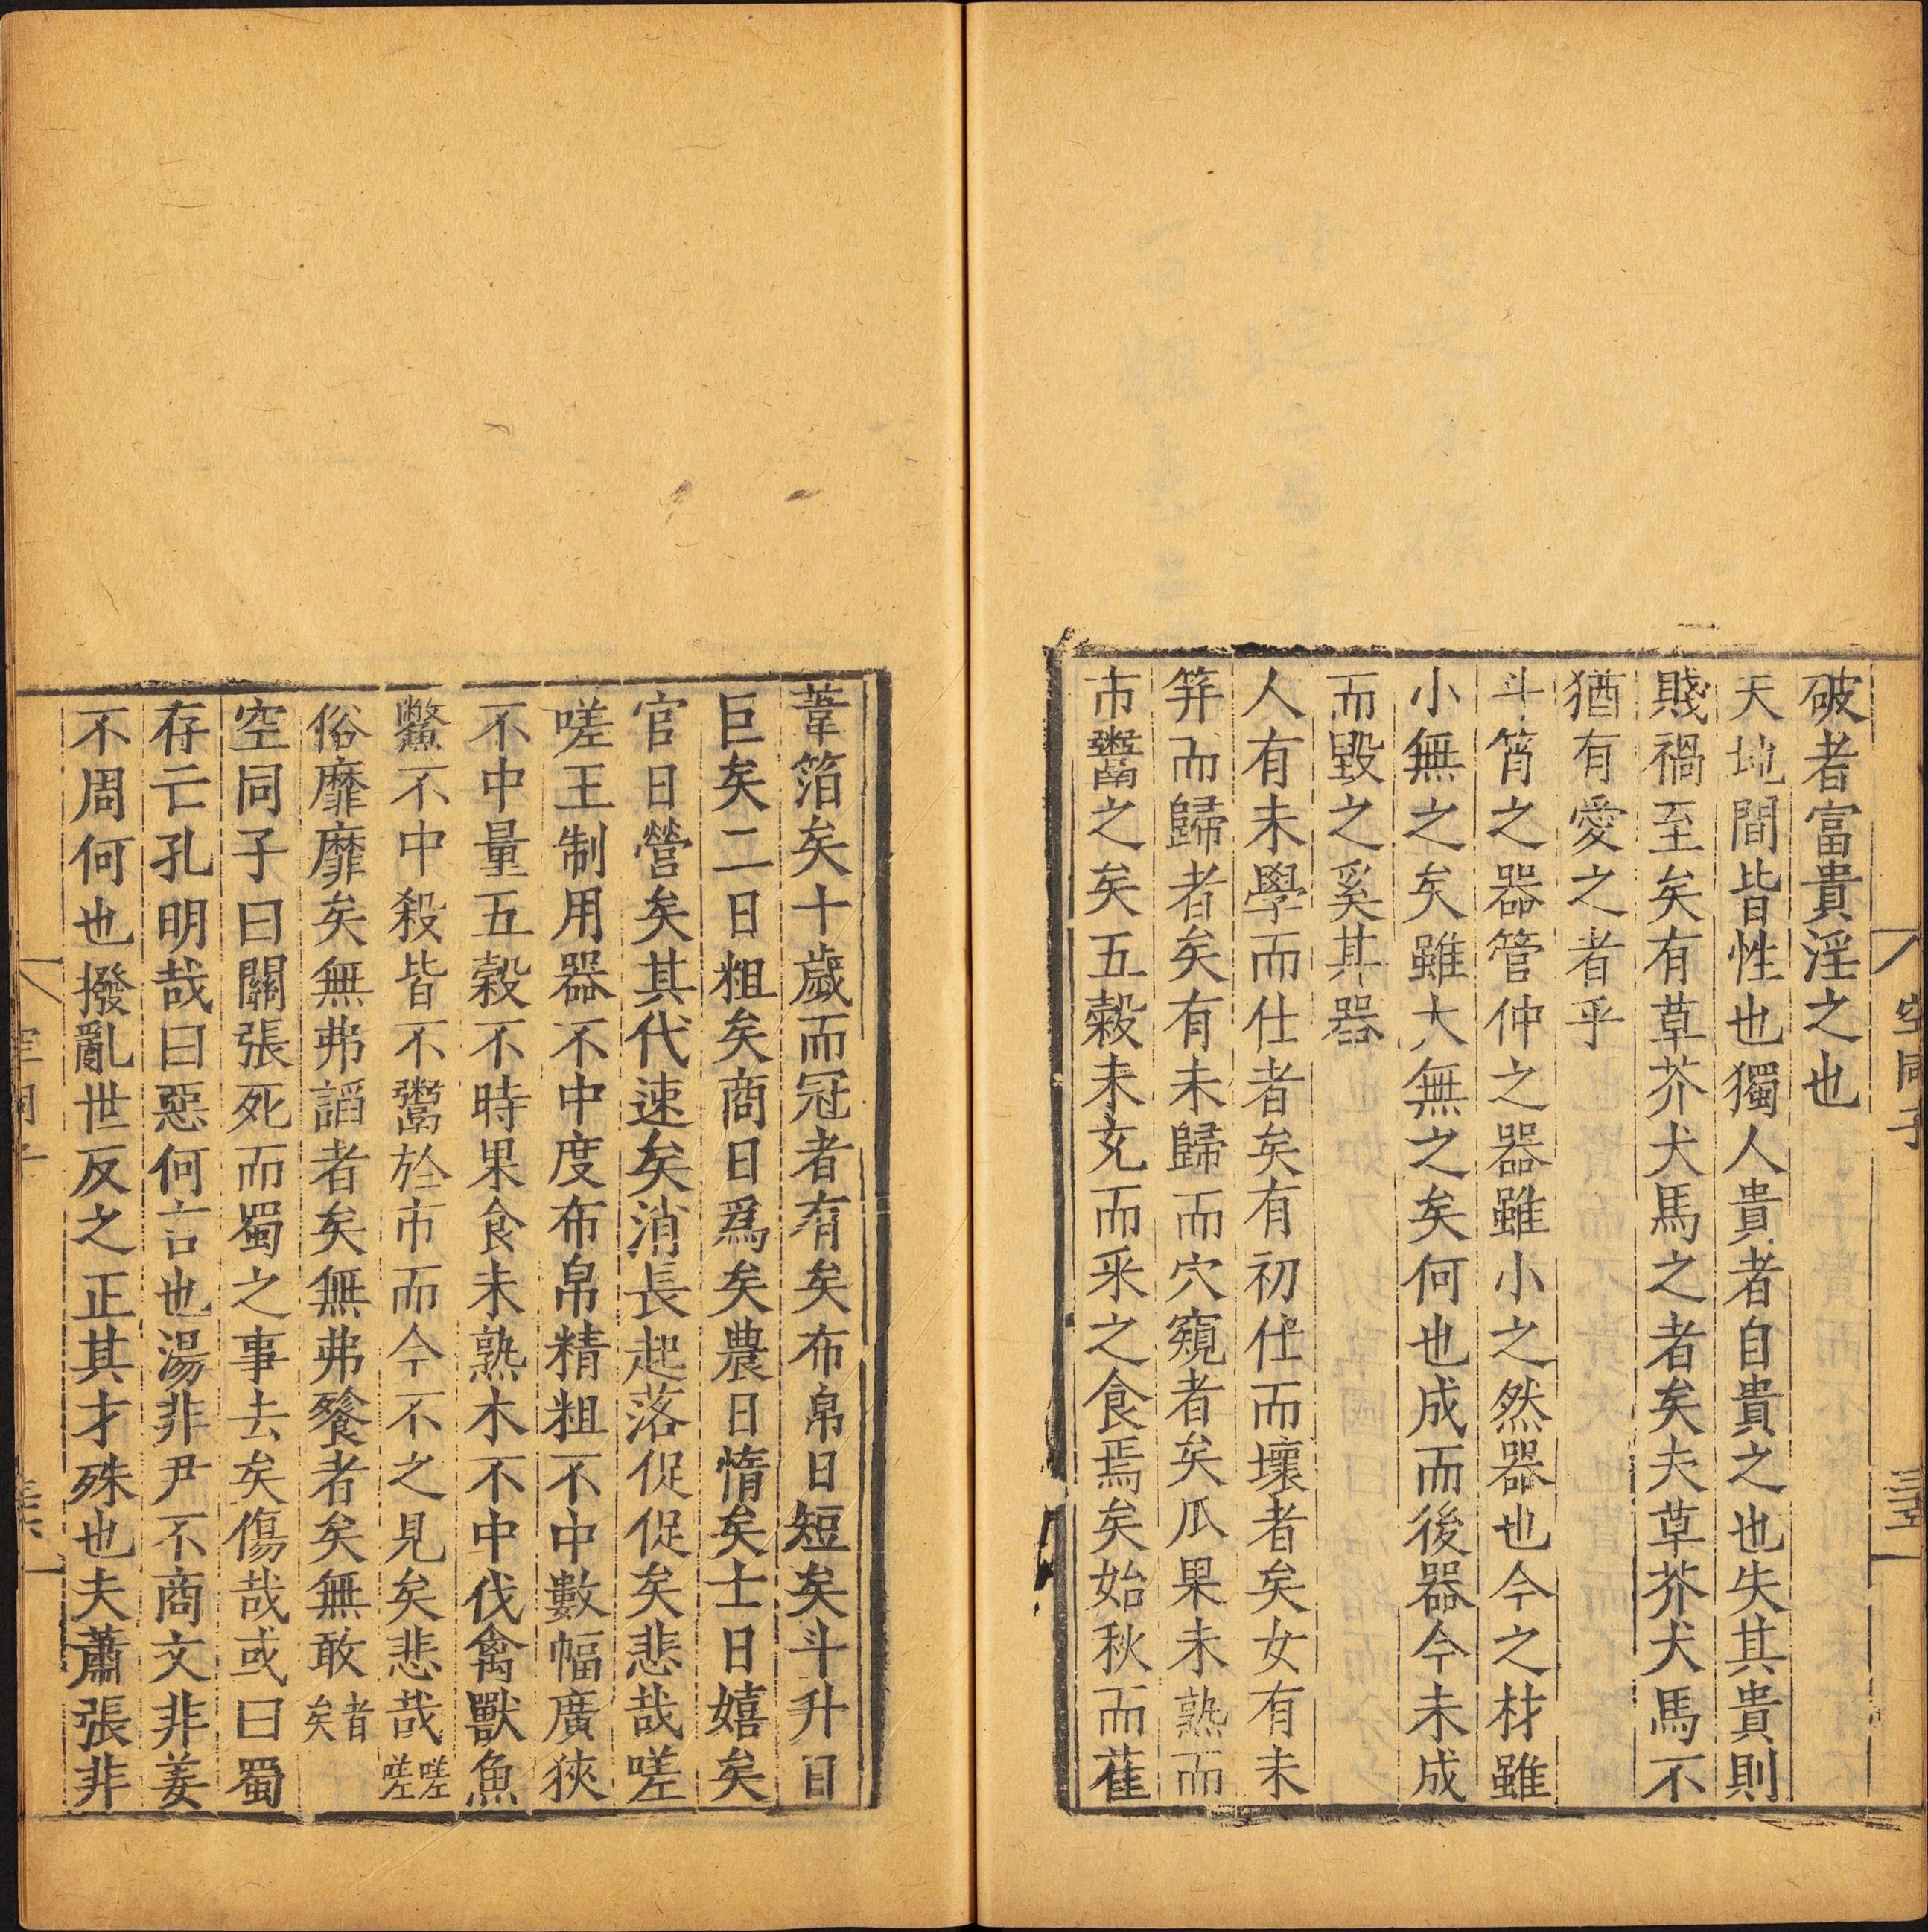 破者富貴淫之也
天地間皆性也獨人貴貴者自貴之也失其貴則
賤禍至矣有草芥犬馬之者矣夫草芥犬馬不
猶有愛之者乎
斗筲之器管仲之器雖小之然器也今之材雖
小無之矣雖大無之矣何也成而後器今未成
而毀之奚其器
人有未學而仕者矣有初仕而壞者矣女有未
筓而歸者矣有未歸而穴窺者矣瓜果未熟而
市鬻之矣五穀未充而采之食焉矣始秋而萑
葦箔矣十歲而冠者有矣布帛日短矣斗升日
巨矣二日粗矣商日爲矣農日惰矣士日嬉矣
官日營矣其代速矣消長起落促促矣悲哉嗟
嗟王制用器不中度布帛精粗不中數幅廣狹
不中量五穀不時果食未熟木不中伐禽獸魚
鱉不中殺皆不鬻於市而今不之見矣悲哉嗟嗟
俗靡靡矣無弗謟者矣無弗飱者矣無敢者矣
空同子曰關張死而蜀之事去矣傷哉或曰蜀
存亡孔明哉曰惡何言也湯非尹不商文非姜
不周何也撥亂世反之正其才殊也夫蕭張非